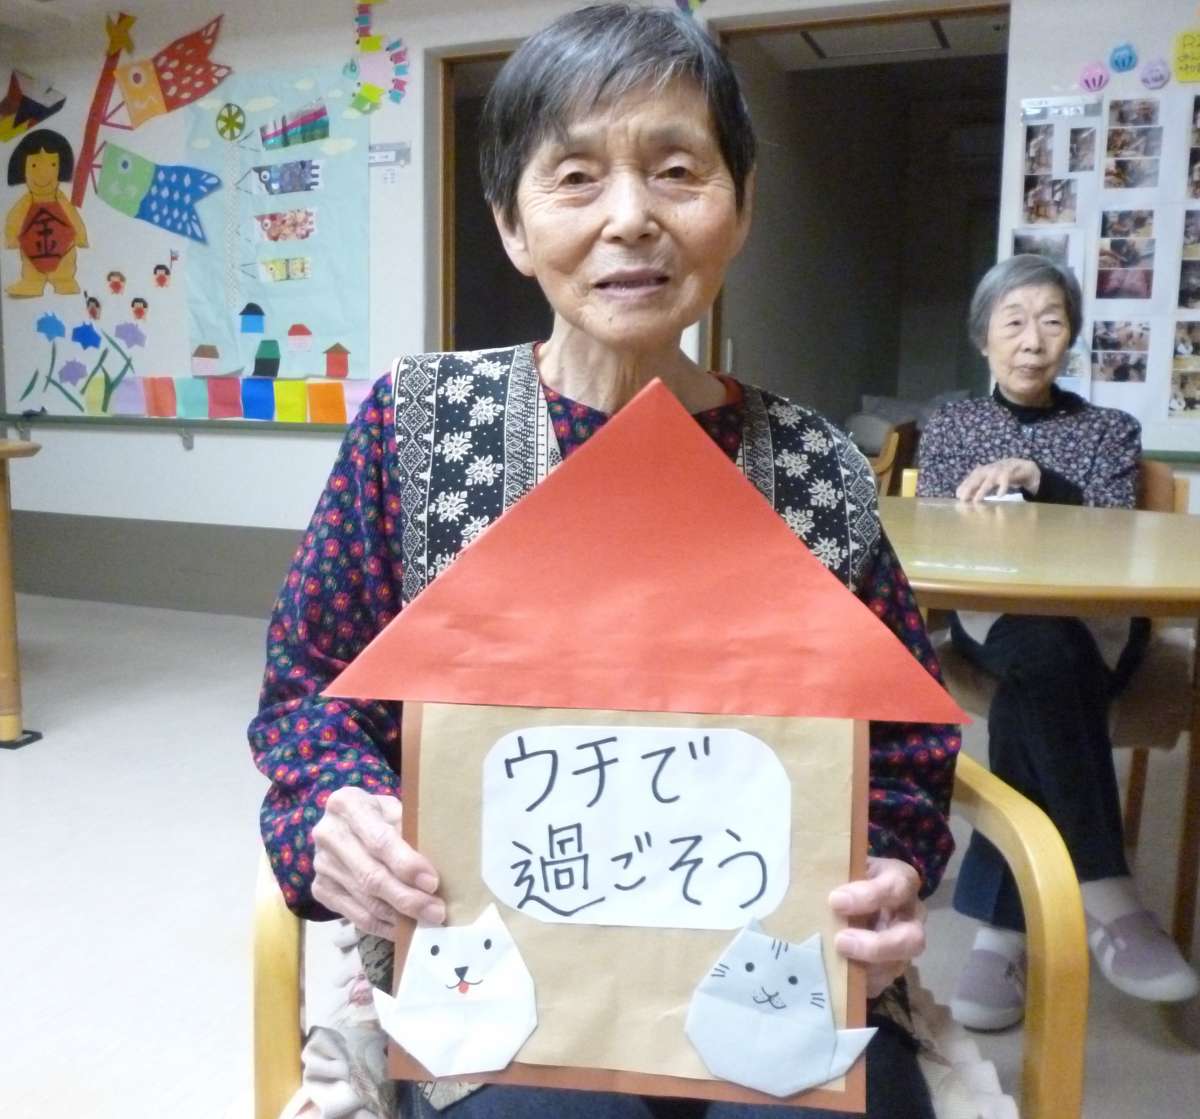 金
ウチで
過ごそう